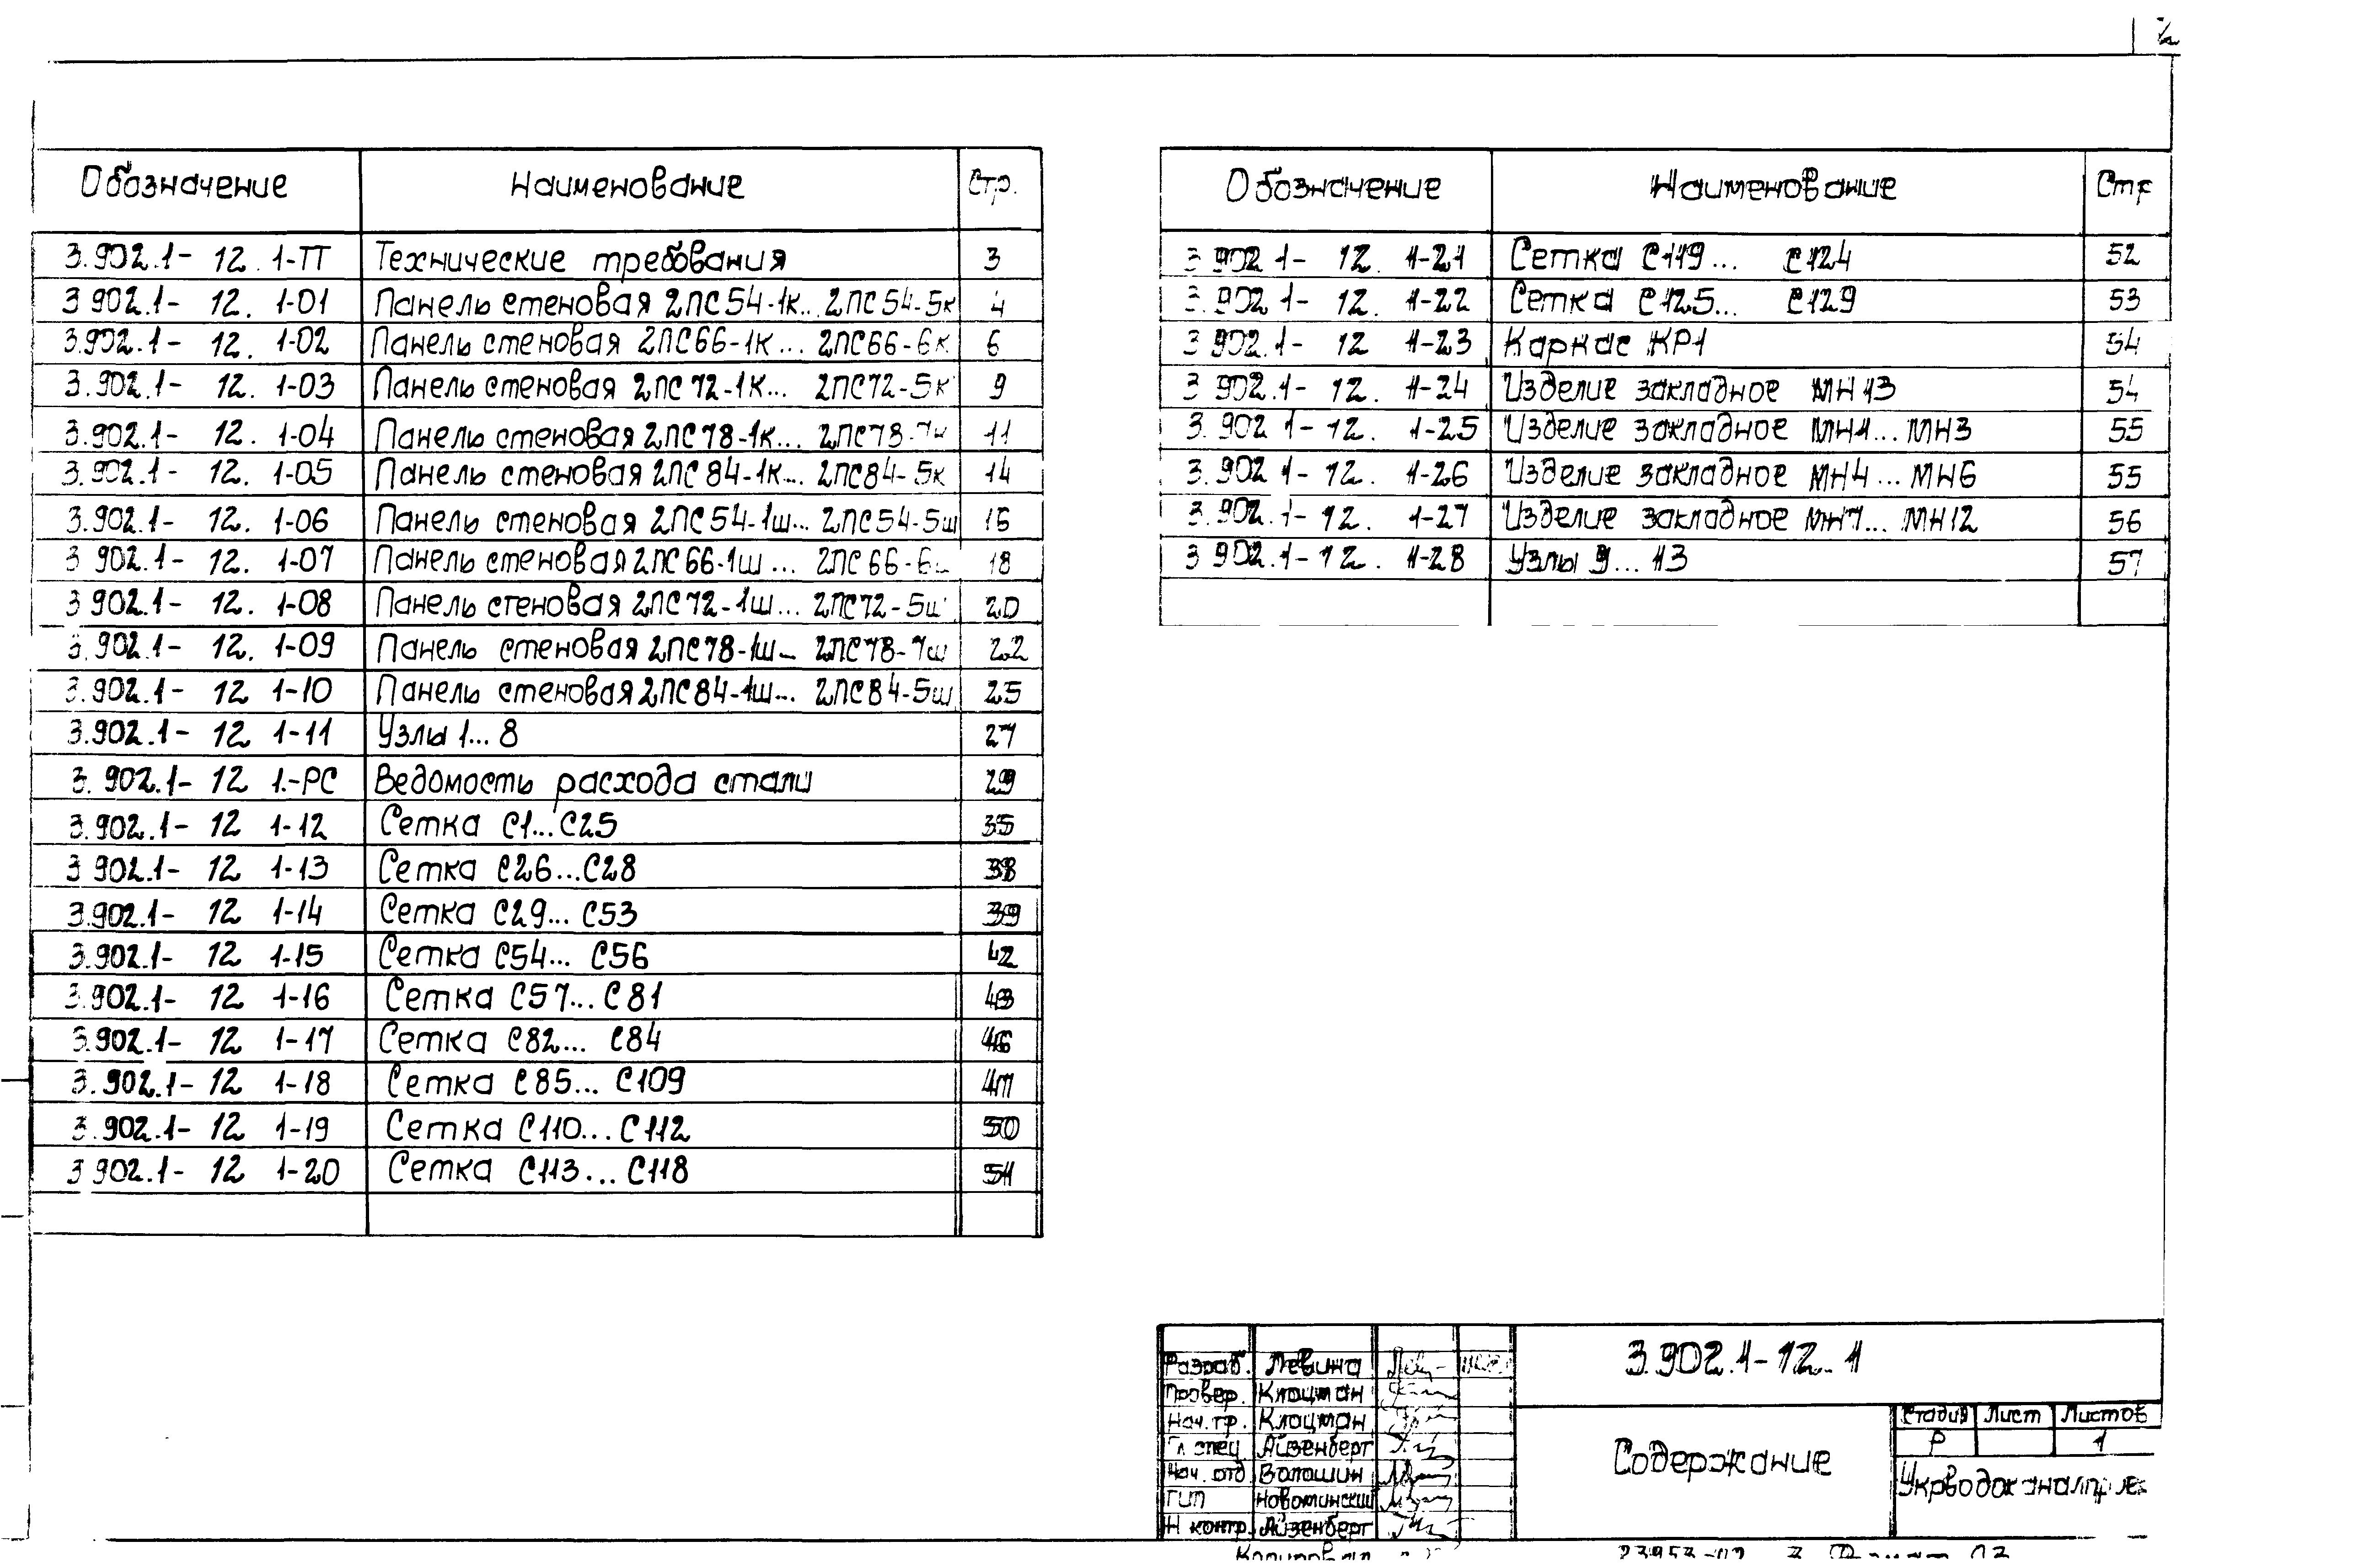 2
Обозначение Наименование Стр.
3.902.1- 12. 1-ТТ Технические требования 3
3.902.1- 12. 1-01 Панель стеновая 2ПС54-1к... 2ПС54-5к 4
3.902.1- 12. 1-02 Панель стеновая 2ПС66-1к... 2ПС66-6к 6
3.902.1- 12. 1-03 Панель стеновая 2ПС72-1к... 2ПС72-5к 9
3.902.1- 12. 1-04 Панель стеновая 2ПС78-1к... 2ПС78-7к 11
3.902.1- 12. 1-05 Панель стеновая 2ПС84-1к... 2ПС84-5к 14
3.902.1- 12. 1-06 Панель стеновая 2ПС54-1ш... 2ПС54-5ш 16
3 902.1- 12. 1-07 Панель стеновая 2ПС66-1ш... 2ПС66-6ш 18
3 902.1- 12. 1-08 Панель стеновая 2ПС72-1ш... 2ПС72-5ш 20
3.902.1- 12. 1-09 Панель стеновая 2ПС78-1ш... 2ПС78-7ш 22
3.902.1- 12 1-10 Панель стеновая 2ПС84-1ш... 2ПС84-5ш 25
3.902.1- 12 1-11 Узлы 1...8 27
3.902.1- 12 1.-РС Ведомость расхода стали 29
3.902.1- 12 1-12 Сетка С1...С25 35
3 902.1- 12 1-13 Сетка С26...С28 38
3.902.1- 12 1-14 Сетка С29...С53 39
3.902.1- 12 1-15 Сетка С54... С56 42
3.902.1- 12 1-16 Сетка С57...С81 43
3.902.1- 12 1-17 Сетка С82... С84 46
3.902.1- 12 1-18 Сетка С85... С109 47
3.902.1- 12 1-19 Сетка С110...С112 50
3 902.1- 12 1-20 Сетка С113...С118 51
Обозначение Наименование Стр
3 902 1- 12. 1-21 Сетка С119... С124 52
3.902 1- 12. 1-22 Сетка С125... С129 53
3 902.1- 12 1-23 Каркас КР1 54
3 902.1- 12. 1-24 Изделие закладное МН13 54
3.902 1- 12. 1-25 Изделие закладное МН1...МН3 55
3.902 1- 12. 1-26 Изделие закладное МН4...МН6 55
3.902.1- 12. 1-27 Изделие закладное МН7...МН12 56
3 902.1- 12. 1-28 Узлы 9...13 57
Разраб. Левина
Провер. Клоцман
Нач.гр. Клоцман
Гл спец Айзенберг
Нач. отд Волошин
ГИП Новоминский
Н контр. Айзенберг
3.902.1-12.1
Содержание
Стадия Лист Листов
Р 1
Копировал